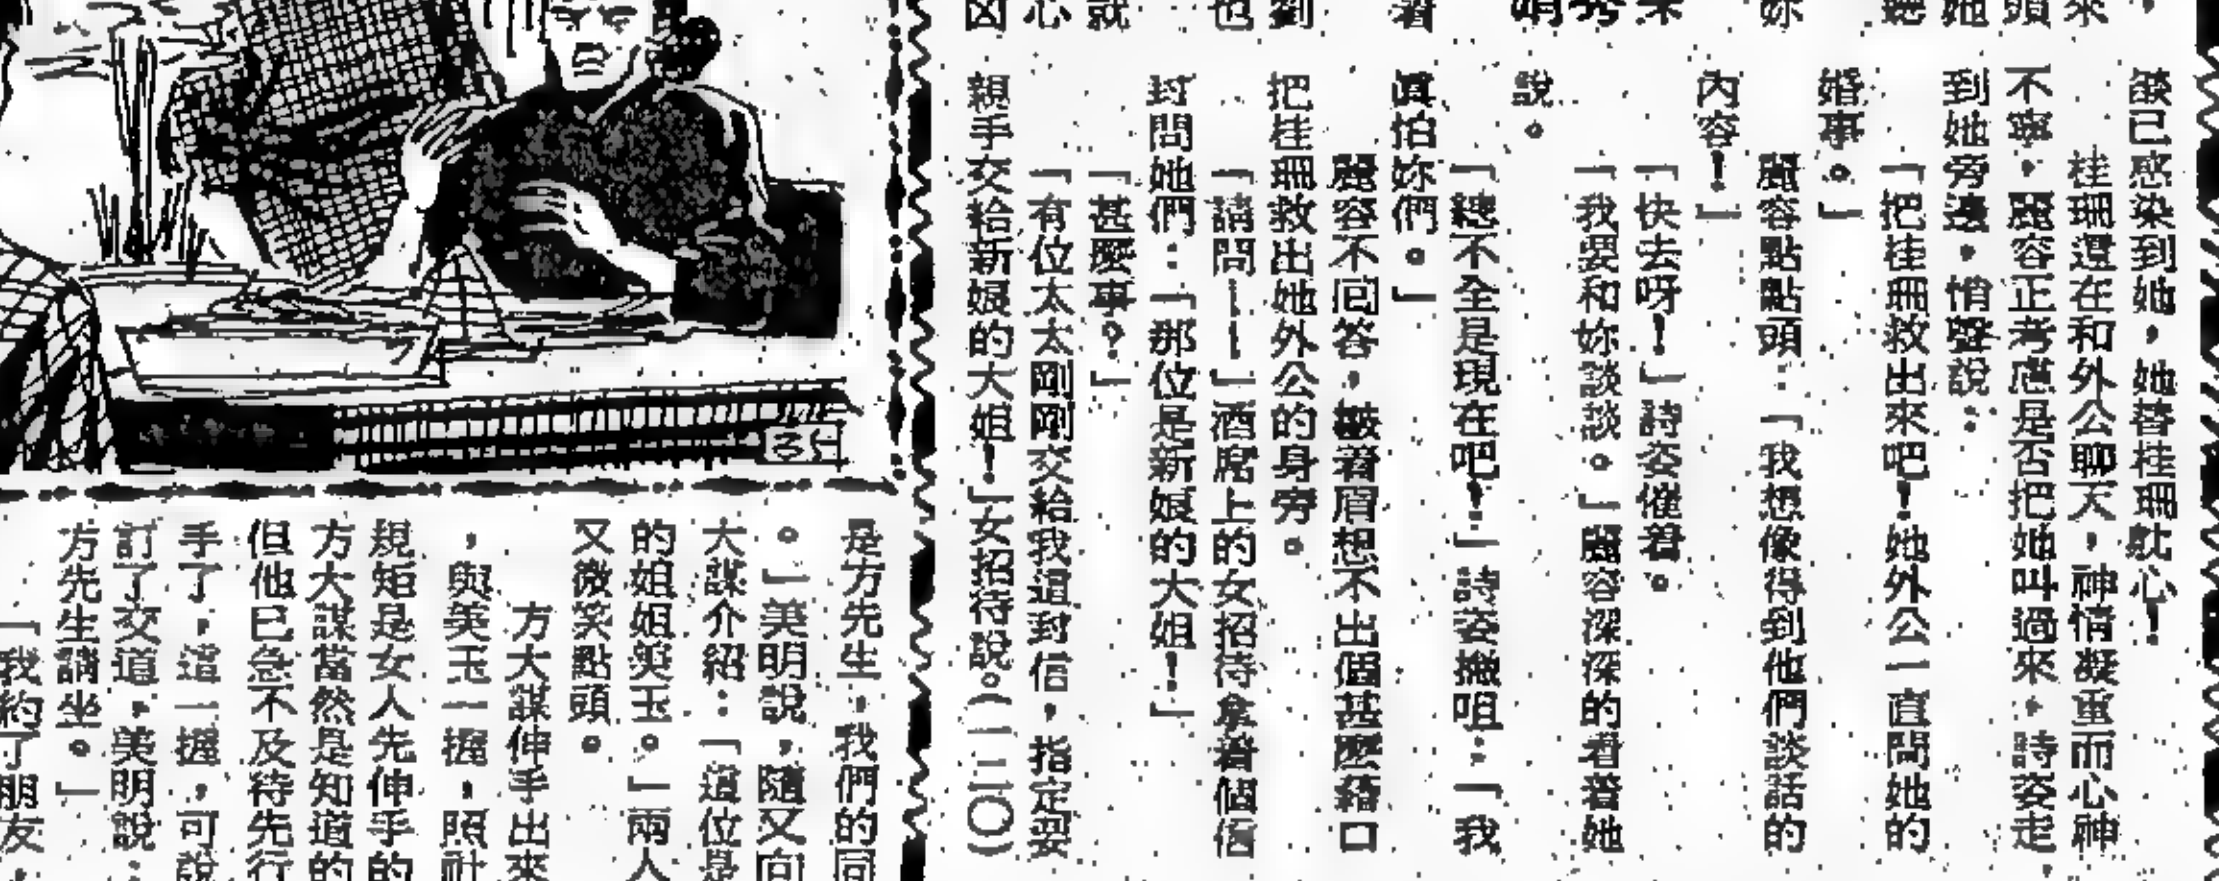 燄已感染到她，她替桂珊躭心！
桂珊還在和外公聊天，神情凝重而心神
不寧，麗容正考慮是否把她叫過來，詩姿走
到她旁邊，悄聲說：
「把桂珊救出來吧！她外公一直問她的
婚事。」
麗容點點頭：「我想像得到他們談話的
內容！」
「快去呀！」詩姿催着。
「我要和妳談談。」麗容深深的看着她
說。
「總不全是現在吧！」詩姿撇咀：「我
眞怕妳們。」
麗容不回答，皺着眉想不出個甚麼藉口
把桂珊救出她外公的身旁。
「請問——」酒席上的女招待拿着個信
封問她們：「那位是新娘的大姐！」
「甚麼事？」
「有位太太剛剛交給我這封信，指定要
親手交給新娘的大姐！」女招待說。（一二〇）
是方先生，我們的同
。」美明說，隨又向
大謀介紹：「這位是
的姐姐美玉。」兩人
又微笑點頭。
方大謀伸手出來
，與美玉一握，照社
規矩是女人先伸手的
方大謀當然是知道的
但他已急不及待先行
手了，這一握，可說
訂了交道，美明說：
方先生請坐。」
「我約了朋友，